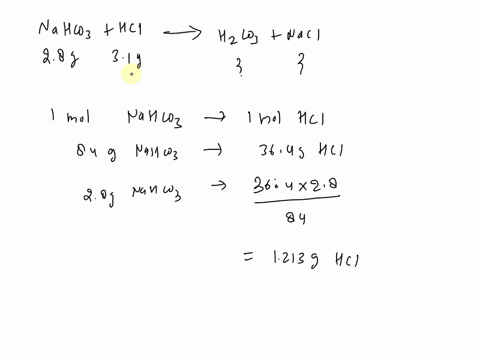 NaHCO3 + HCl → H2CO3 + NaCl
2.8g 3.1g ? ?
1 mol NaHCO3 → 1 mol HCl
84 g NaHCO3 → 36.4g HCl
2.8g NaHCO3 → 36.4 x 2.8
84
= 1.213 g HCl